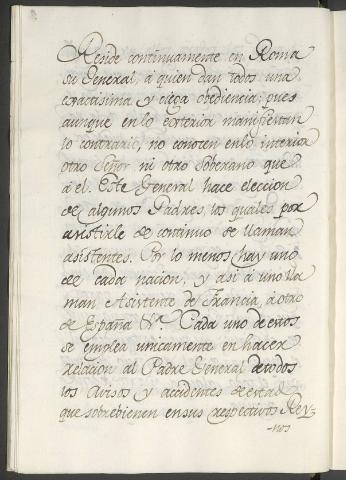 Reside continuamente en Roma
su General, a quien dan todos una
exactisima y ciega obediencia; pues
aunque en lo exterior manifiestan
lo contrario, no conocen en lo interior
otro Señor ni otro Soberano que
á el. Este General hace eleccion
de algunos Padres, los quales por
asistirle de continuo se llaman
asistentes. Por lo menos hay uno
de cada nacion, y asi á uno lla
man Asistente de Francia, á otro
de España &ª. Cada uno de estos
se emplea unicamente en hacer
relacion al Padre General de todos
los Avisos y accidentes de estado
que sobrebienen en sus respectivos Rey-
-nos